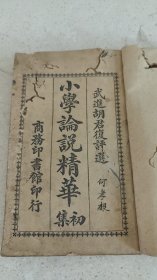 武進胡君復評選
何孝根
小學論說精華
初集
商務印書館印行